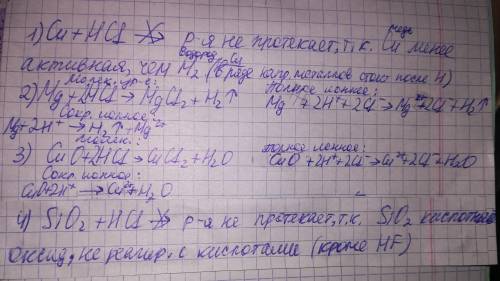 1) Cu + HCl ↛ р-я не протекает, т.к. Cu медь менее
активная, чем H₂ водород (в ряде напр. металлов стоит после H)
молек. ур-е:
2) Mg + 2HCl → MgCl₂ + H₂↑
полное ионное:
Mg + 2H⁺ + 2Cl⁻ → Mg²⁺ + 2Cl⁻ + H₂↑
Сокр. ионное:
Mg + 2H⁺ → H₂↑ + Mg²⁺
3) CuO + 2HCl → CuCl₂ + H₂O
полное ионное:
CuO + 2H⁺ + 2Cl⁻ → Cu²⁺ + 2Cl⁻ + H₂O
Сокр. ионное:
CuO + 2H⁺ → Cu²⁺ + H₂O
4) SiO₂ + HCl ↛ р-я не протекает, т.к. SiO₂ кислотный
оксид, не реагир. с кислотами (кроме HF)